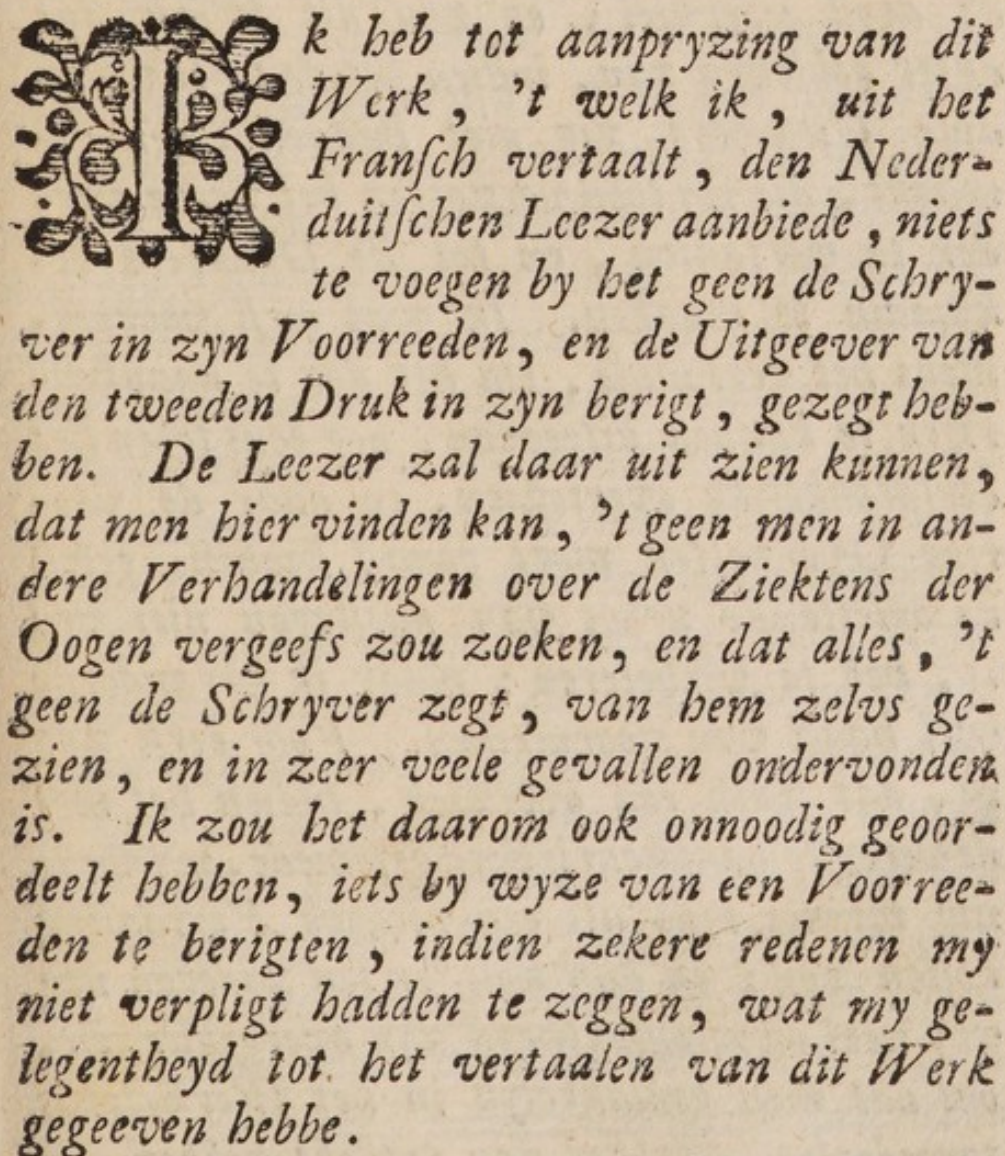 Ik heb tot aanpryzing van dit
Werk, 't welk ik, uit het
Franſch vertaalt, den Neder-
duitſchen Leezer aanbiede, niets
te voegen by het geen de Schry-
ver in zyn Voorreeden, en de Uitgeever van
den tweeden Druk in zyn berigt, gezegt heb-
ben. De Leezer zal daar uit zien kunnen,
dat men hier vinden kan, 't geen men in an-
dere Verhandelingen over de Ziektens der
Oogen vergeefs zou zoeken, en dat alles, 't
geen de Schryver zegt, van hem zelvs ge-
zien, en in zeer veele gevallen ondervonden
is. Ik zou het daarom ook onnoodig geoor-
deelt hebben, iets by wyze van een Voorree-
den te berigten, indien zekere redenen my
niet verpligt hadden te zeggen, wat my ge-
legentheyd tot het vertaalen van dit Werk
gegeeven hebbe.